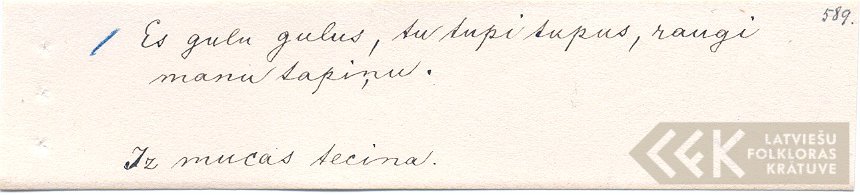 589.
/ Es gulu gulus, tu tupi tupus, raugi
manu tapiņu.
Iz mucas tecina.
LATVIEŠU
FOLKLORAS
KRĀTUVE